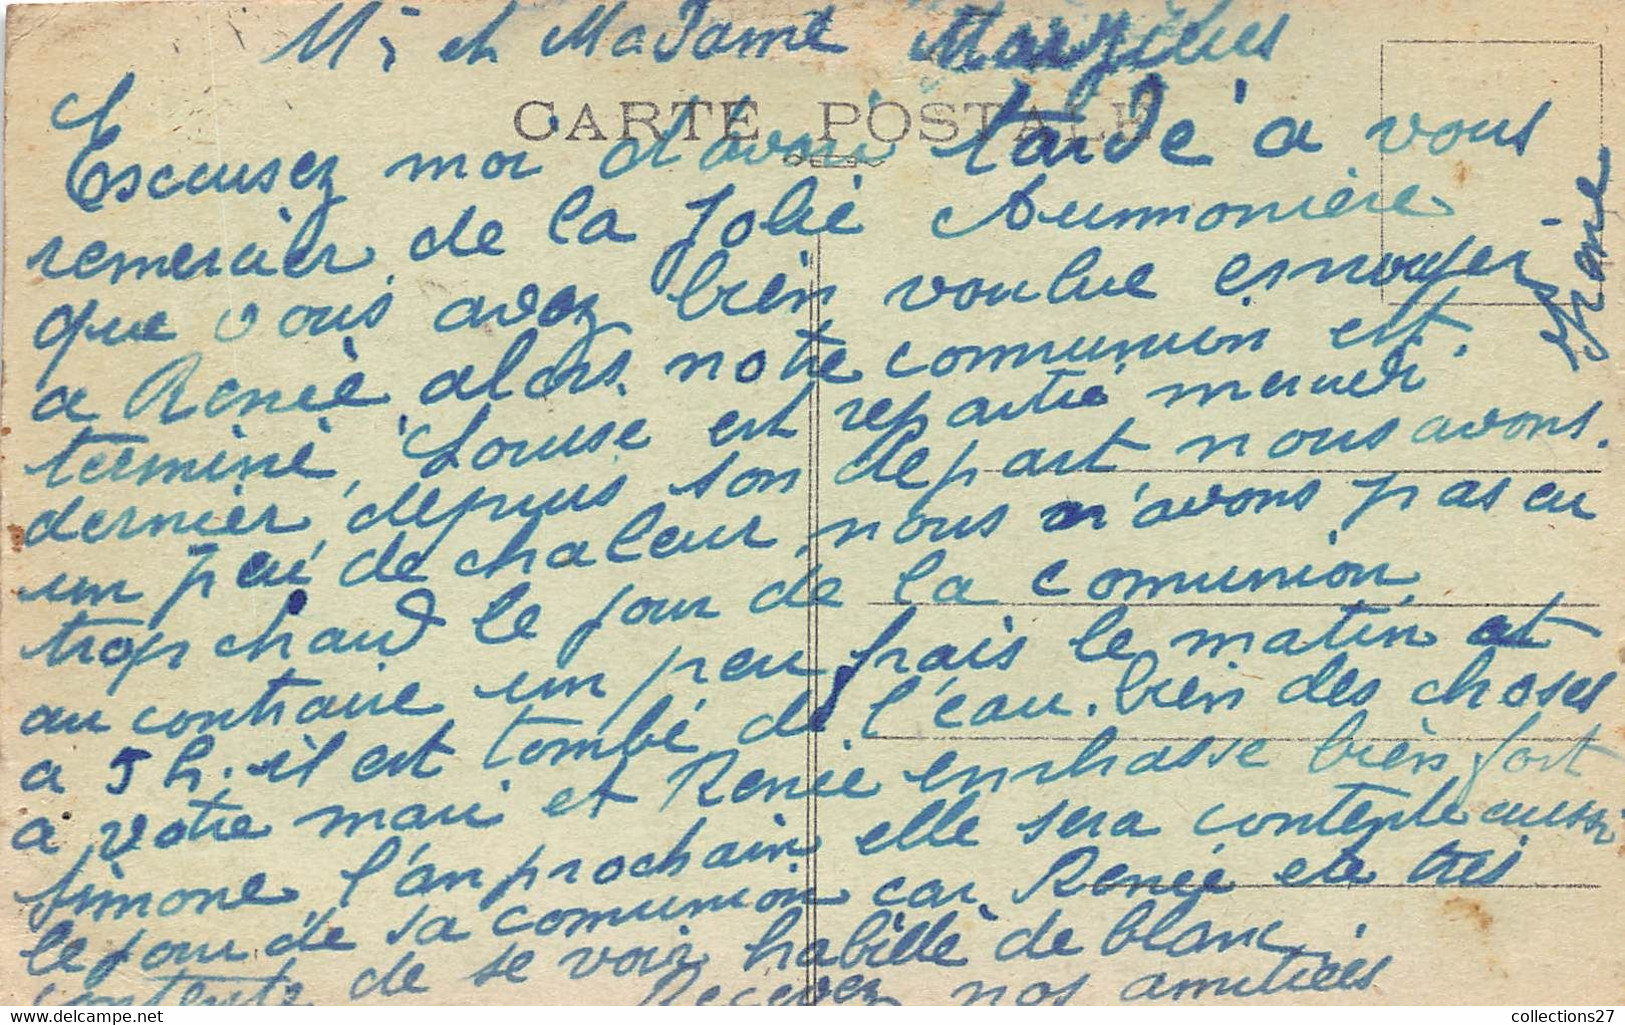 Mr et Madame
CARTE POSTALE
Escusez moi d'avoir tardé à vous
remercier de la jolie Aumonière
que vous avez bien voulue envoyer
a Renée alors notre communion est
terminé, Louise est repartie mercredi
dernier, depuis son départ nous avons
un peu de chaleur, nous n'avons pas eu
trop chaud le jour de la comunion
au contraire un peu frais le matin et
a 5 h. il est tombé de l'eau. bien des choses
a votre mari et Renée embrasse bien fort
Simone, l'an prochain elle sera contente aussi
le jour de sa comunion car Renée ete très
contente de se voir habillé de blanc.
Recevez nos amitiées
Irene
collections27